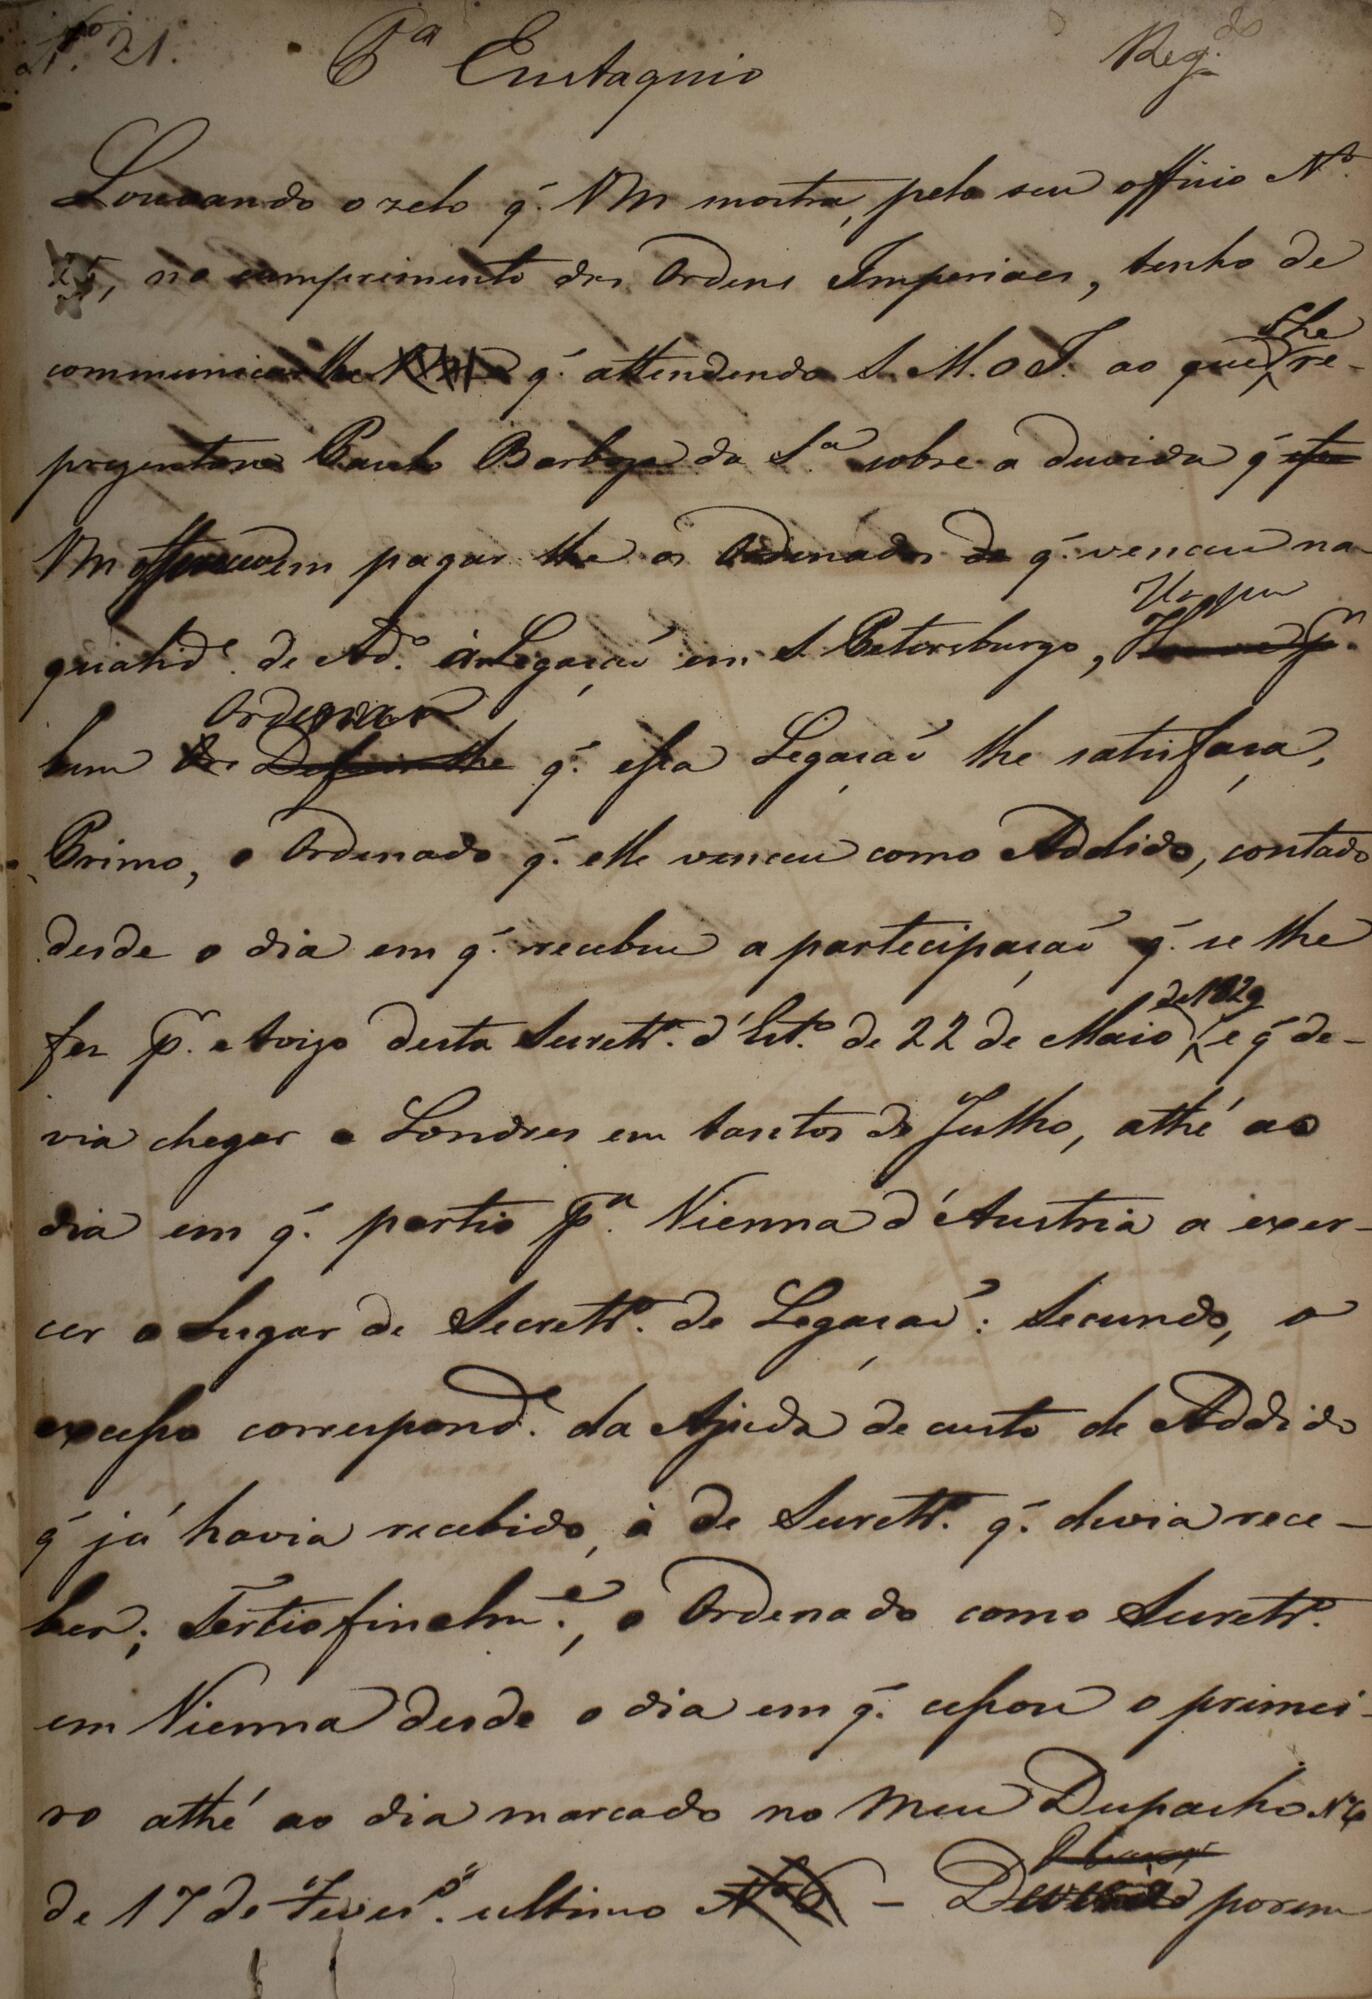 N.º 21. P.ª Eustaquio Reg.do
Louvando o zelo q̃. VM mostra, pelo seu officio N.º
25, no cumprimento das Ordens Imperiaes, tenho de
communicar lhe q̃. attendendo S. M. O I. ao que lhe re-
prezentara Paulo Barboza da S.ª sobre a duvida q̃
VM offerece em pagar lhe os Ordenados de q̃. venceu na
qualid.e de Ad.º à Legação em S. Petersburgo, Ha por
bem Ordenar q̃. essa Legação lhe satisfaça,
Primo, o Ordenado q̃. elle venceu como Addido, contado
desde o dia em q̃. recebeu a partecipação q̃. se lhe
fez p.r Avizo desta Secretr.ª d'Est.º de 22 de Maio de 1829 e q̃ de-
via chegar a Londres em tantos de Julho, athé ao
dia em q̃. partio p.ª Vienna d'Austria a exer-
cer o Lugar de Secretr.º de Legação: Secundo, o
excesso correspond.e da Ajuda de custo de Addido
q̃ já havia recebido, à de Secretr.º q̃. devia rece-
ber; Tertio finalm.e, o Ordenado como Secretr.º
em Vienna desde o dia em q̃. cessou o primei-
ro athé ao dia marcado no meu Despacho N.º 6
de 17 de Fever.º ultimo N.º 6 – porem